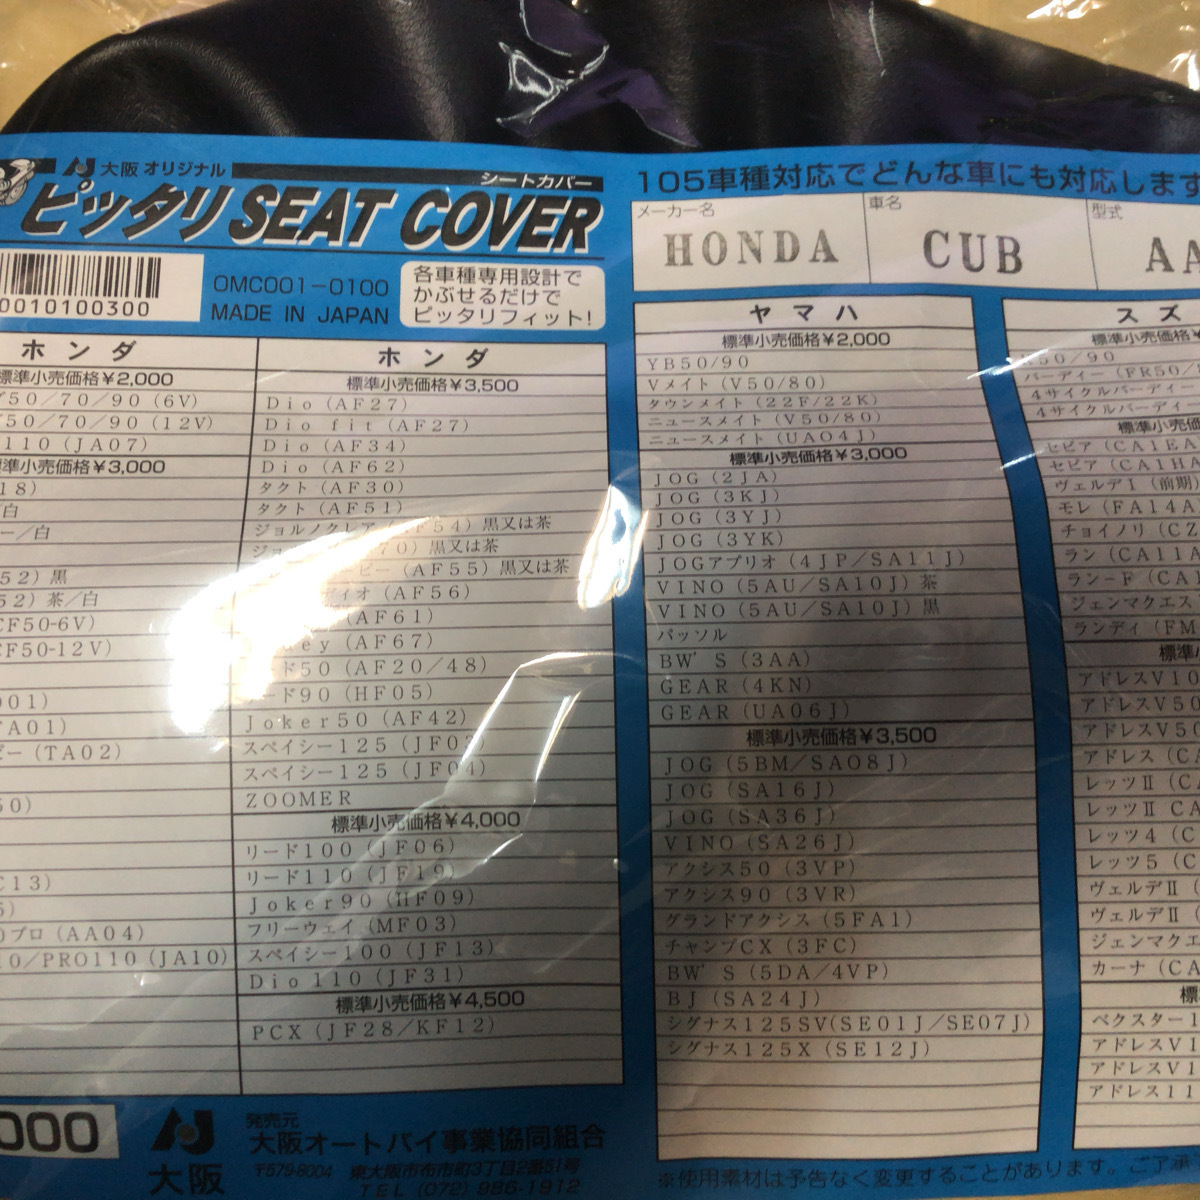 大阪 オリジナル
シートカバー
ピッタリ SEAT COVER
0010100300
OMC001-0100
MADE IN JAPAN
各車種専用設計で
かぶせるだけで
ピッタリフィット!
105車種対応でどんな車にも対応します
メーカー名
HONDA
車名
CUB
型式
AA
ホンダ
標準小売価格¥2,000
50/70/90 (6V)
50/70/90 (12V)
110 (JA07)
標準小売価格¥3,000
18)
/白
ー/白
52) 黒
52) 茶/白
CF50-6V)
CF50-12V)
001)
TA01)
ー (TA02)
50)
C13)
5)
0プロ (AA04)
10/PRO110 (JA10)
ホンダ
標準小売価格¥3,500
Dio (AF27)
Dio fit (AF27)
Dio (AF34)
Dio (AF62)
タクト (AF30)
タクト (AF51)
ジョルノクレア (AF54) 黒又は茶
70) 黒又は茶
(AF55) 黒又は茶
ディオ (AF56)
AF61)
key (AF67)
ド50 (AF20/48)
ード90 (HF05)
Joker50 (AF42)
スペイシー125 (JF03)
スペイシー125 (JF04)
ZOOMER
標準小売価格¥4,000
リード100 (JF06)
リード110 (JF19)
Joker90 (HF09)
フリーウェイ (MF03)
スペイシー100 (JF13)
Dio110 (JF31)
標準小売価格¥4,500
PCX (JF28/KF12)
ヤマハ
標準小売価格¥2,000
YB50/90
Vメイト (V50/80)
タウンメイト (22F/22K)
ニュースメイト (V50/80)
ニュースメイト (UA04J)
標準小売価格¥3,000
JOG (2JA)
JOG (3KJ)
JOG (3YJ)
JOG (3YK)
JOGアプリオ (4JP/SA11J)
VINO (5AU/SA10J) 茶
VINO (5AU/SA10J) 黒
パッソル
BW'S (3AA)
GEAR (4KN)
GEAR (UA06J)
標準小売価格¥3,500
JOG (5BM/SA08J)
JOG (SA16J)
JOG (SA36J)
VINO (SA26J)
アクシス50 (3VP)
アクシス90 (3VR)
グランドアクシス (5FA1)
チャンプCX (3FC)
BW'S (5DA/4VP)
BJ (SA24J)
シグナス125SV(SE01J/SE07J)
シグナス125X (SE12J)
スズ
標準小売価格¥
50/90
バーディー (FR50/
4サイクルバーディー
4サイクルバーディー
標準小売価
セピア (CA1EA
セピア (CA1HA
ヴェルデI (前期)
モレ (FA14A
チョイノリ (CZ
ラン (CA11A
ラン-F (CA1
ジェンマクエス
ランディ (FM
標準小
アドレスV10
アドレスV50
アドレスV50
アドレス (CA
レッツII (CA
レッツII CA
レッツ4 (C
レッツ5 (C
ヴェルデII (
ヴェルデII (
ジェンマクエ
カーナ (CA
標
ベクスター1
アドレスV1
アドレスV1
アドレス11
000
大阪
発売元
大阪オートバイ事業協同組合
〒579-8004 東大阪市布市町3丁目2番51号
TEL (072) 986-1912
※使用素材は予告なく変更することがあります。ご了承